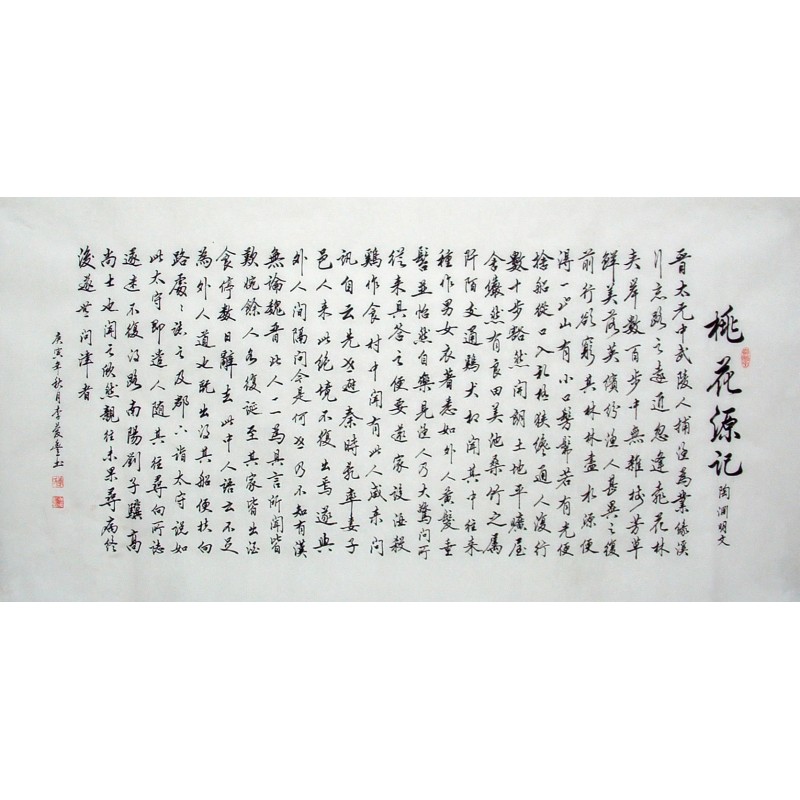 桃花源记
陶渊明文
晋太元中武陵人捕渔為業缘溪
行忘路之遠近忽逢桃花林
夹岸數百步中無雜樹芳草
鲜美落英缤纷渔人甚異之復
前行欲窮其林林盡水源便
得一山山有小口髣髴若有光便
捨船從口入初極狹纔通人復行
數十步豁然開朗土地平曠屋
舍儼然有良田美池桑竹之屬
阡陌交通鷄犬相闻其中往来
種作男女衣著悉如外人黄髮垂
髫並怡然自樂見渔人乃大驚问所
從来具答之便要還家設酒殺
鷄作食村中闻有此人咸来问
訊自云先世避秦時亂率妻子
邑人来此绝境不復出焉遂與
外人间隔问今是何世乃不知有漢
無論魏晋此人一一為具言所闻皆
歎惋餘人各復延至其家皆出酒
食停數日辭去此中人語云不足
為外人道也既出得其船便扶向
路處々誌之及郡下詣太守説如
此太守即遣人随其往尋向所誌
遂迷不復得路南陽劉子驥高
尚士也闻之欣然親往未果尋病终
後遂無问津者
庚寅年秋月李书